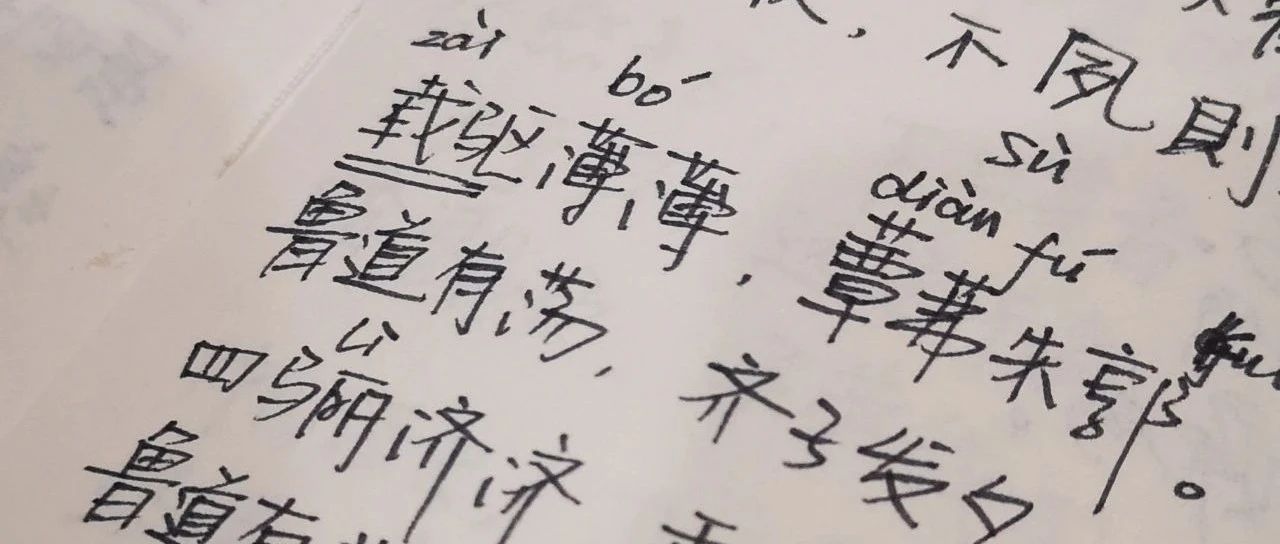 ,不夙則
sù
zài bó diàn fú
载驱薄薄,簟茀朱鞹。
鲁道有荡,齐子发夕
lí
四骊济济
鲁道有